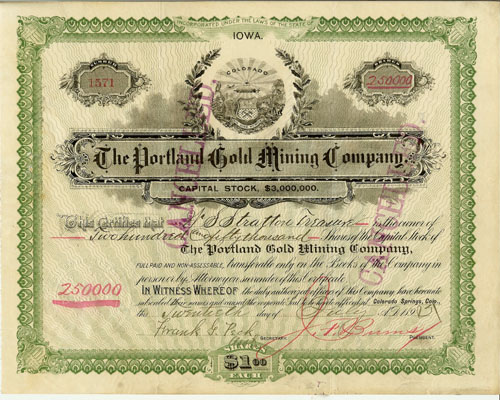 INCORPORATED UNDER THE LAWS OF THE STATE OF
IOWA.
NUMBER
1571
COLORADO
SHARES
250000
CANCELLED.
CANCELLED.
The Portland Gold Mining Company.
CAPITAL STOCK, $3,000,000.
This Certifies that W S Stratton Treasurer is the owner of
Two hundred and fifty thousand Shares of the Capital Stock of
The Portland Gold Mining Company,
FULL PAID AND NON-ASSESSABLE, transferable only on the Books of the Company in
person or by Attorney on surrender of this Certificate.
250000
IN WITNESS WHEREOF the duly authorized officers of this Company have hereunto
subscribed their names and caused the corporate Seal to be hereto affixed at Colorado Springs, Colo.,
the Twentieth day of July A.D. 189
Frank G. Peck
SECRETARY.
J. F. Burns
PRESIDENT.
SHARES
$1.00
EACH